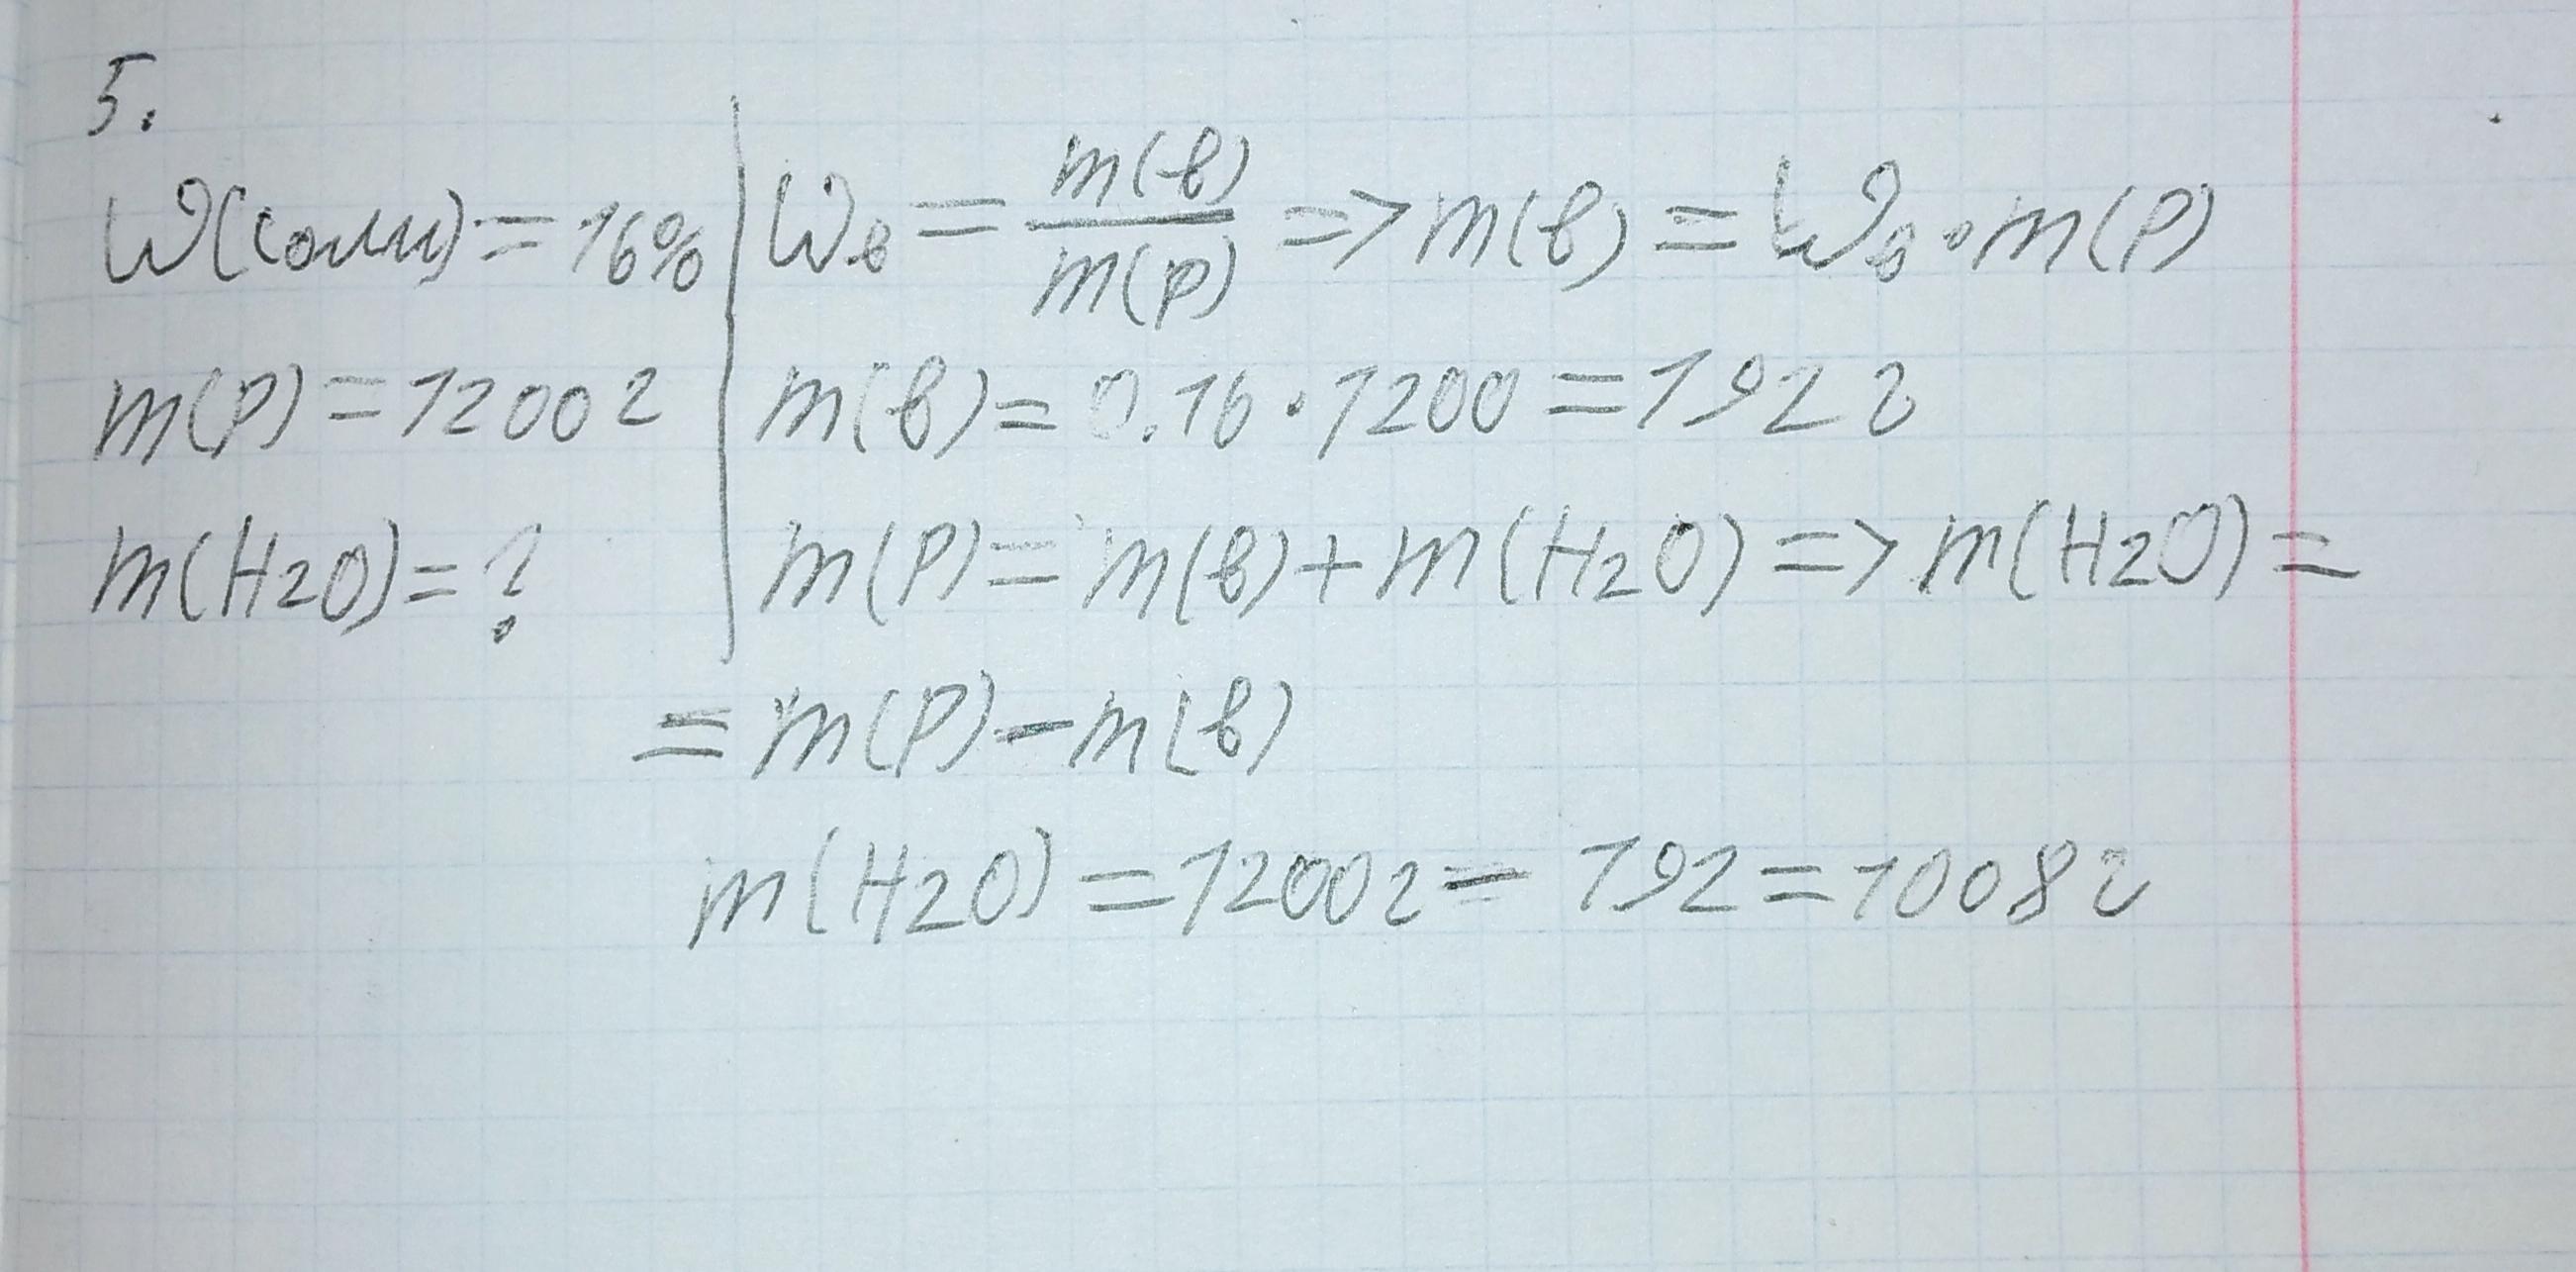 5.
W(соли) = 16%
m(р) = 1200г
m(H2O) = ?
Wв = m(в)/m(р) => m(в) = Wв · m(р)
m(в) = 0.16 · 1200 = 192 г
m(р) = m(в) + m(H2O) => m(H2O) =
= m(р) - m(в)
m(H2O) = 1200г - 192 = 1008г